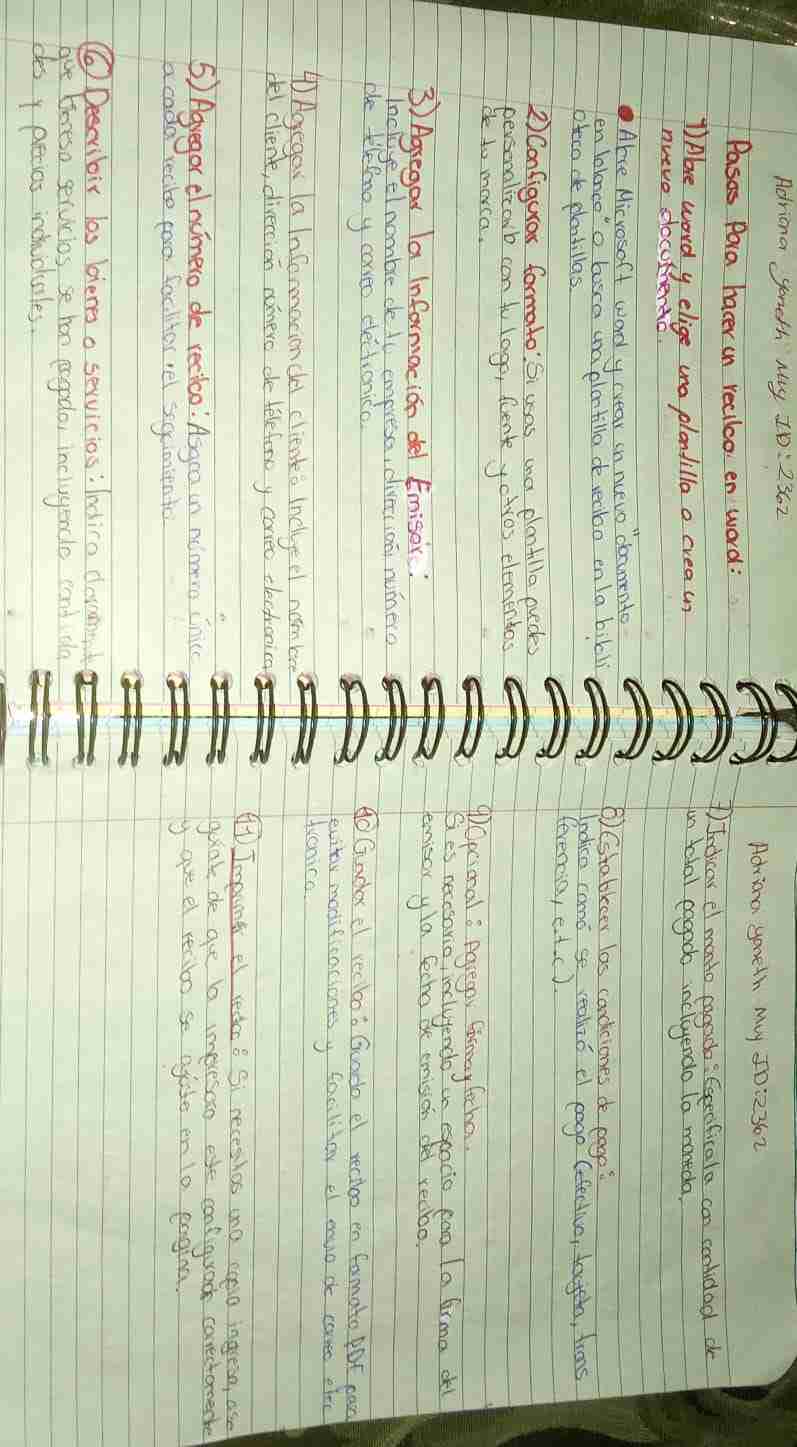 Adriana yaneth Muy ID: 2362
Pasos Para hacer un recibo en word:
1) Abre word y elige una plantilla o crea un
nuevo documento.
• Abre Microsoft word y crear un nuevo "documento
en blanco" o busca una plantilla de recibo en la bibli
oteca de plantillas.
2) Configurar formato: Si usas una plantilla puedes
personalizarlo con tu logo, fuente y otros elementos
de tu marca.
3) Agregar la Información del Emisor:
Incluye el nombre de tu empresa, dirección, número
de teléfono y correo electronico.
4) Agregar la Información del cliente: Incluye el nombre
del cliente, dirección número de teléfono y correo electronico
5) Agregar el número de recibo: Asigna un número único
a cada recibo para facilitar el seguimiento
6) Describir los bienes o servicios: Indica
que servicios se han pagado, incluyendo cantida
des y precios individuales.
Adriana yaneth Muy ID: 2362
7) Indicar el monto pagado: Especificala con cantidad de
un total pagado incluyendo la moneda.
8) Establecer las condiciones de pago:
Indica como se realizó el pago (efectivo, tarjeta, trans
ferencia, e.t.c).
9) Opcional: Agregar firma y fecha.
Si es necesario, incluyendo un espacio para la firma del
emisor y la fecha de emisión del recibo.
10 Guardar el recibo: Guarda el recibo en formato PDF para
evitar modificaciones y facilitar el envio de correo elec
tronico.
11) Imprimir el recibo: Si necesitas una copia ingresa, ase
gurate de que la impresora este configurada correctamente
y que el recibo se ajuste en la pagina.